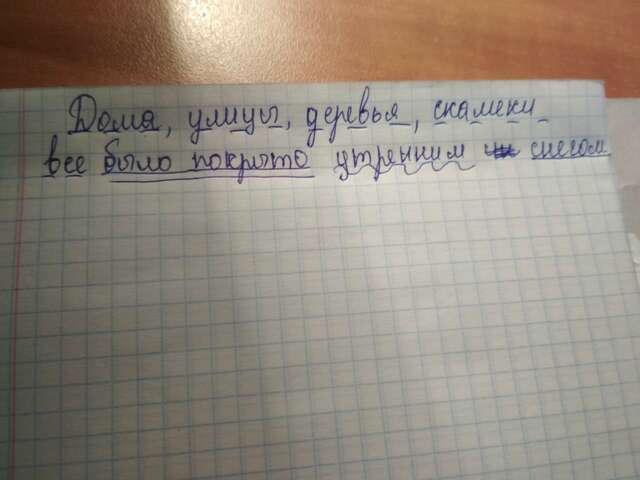 Дома, улицы, деревья, скамейки -
все было покрыто утренним снегом